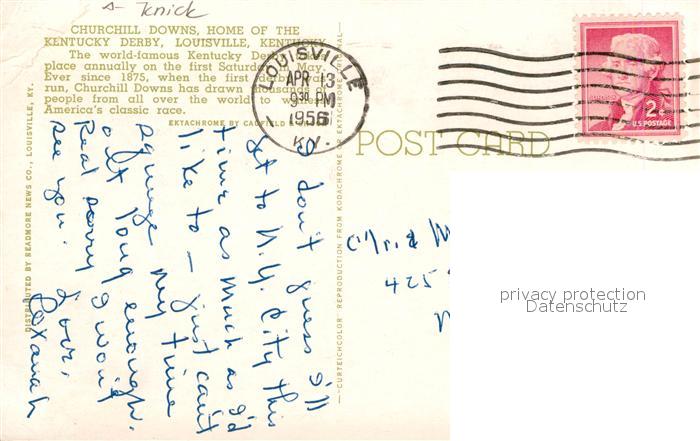 CHURCHILL DOWNS, HOME OF THE
KENTUCKY DERBY, LOUISVILLE, KENTUCKY
The world-famous Kentucky Derby
place annually on the first Saturday in May.
Ever since 1875, when the first derby was
run, Churchill Downs has drawn thousands of
people from all over the world to witness
America's classic race.
EKTACHROME BY CAUFIELD
DISTRIBUTED BY READMORE NEWS CO., LOUISVILLE, KY.
I don't guess I'll
get to N.Y. City this
time as much as I'd
like to — just can't
my time
out long enough.
Real sorry I won't
see you.
Love,
—CURTEICHCOLOR® REPRODUCTION FROM KODACHROME OR EKTACHROME
LOUISVILLE
APR 13
9 30 PM
1956
KY.
2¢
U.S. POSTAGE
POST CARD
425
privacy protection
Datenschutz